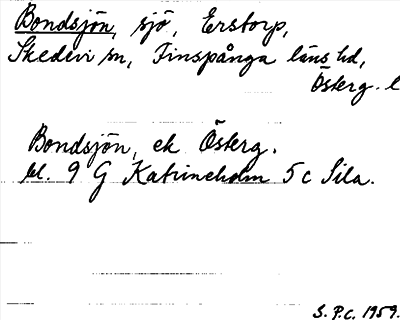 Bondsjön, sjö, Erstorp,
Skedevi sn, Finspånga läns hd,
Österg. l
Bondsjön, ek Österg.
bl. 9 G Katrineholm 5 c Sila.
S.P.C. 1959.